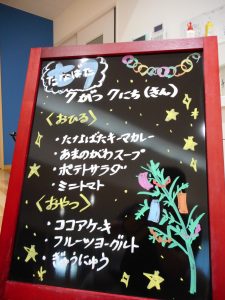 たなばた
7がつ 7にち(きん)
〈おひる〉
・たなばたキーマカレー
・あまのがわスープ
・ポテトサラダ
・ミニトマト
〈おやつ〉
・ココアケーキ
・フルーツヨーグルト
・ぎゅうにゅう